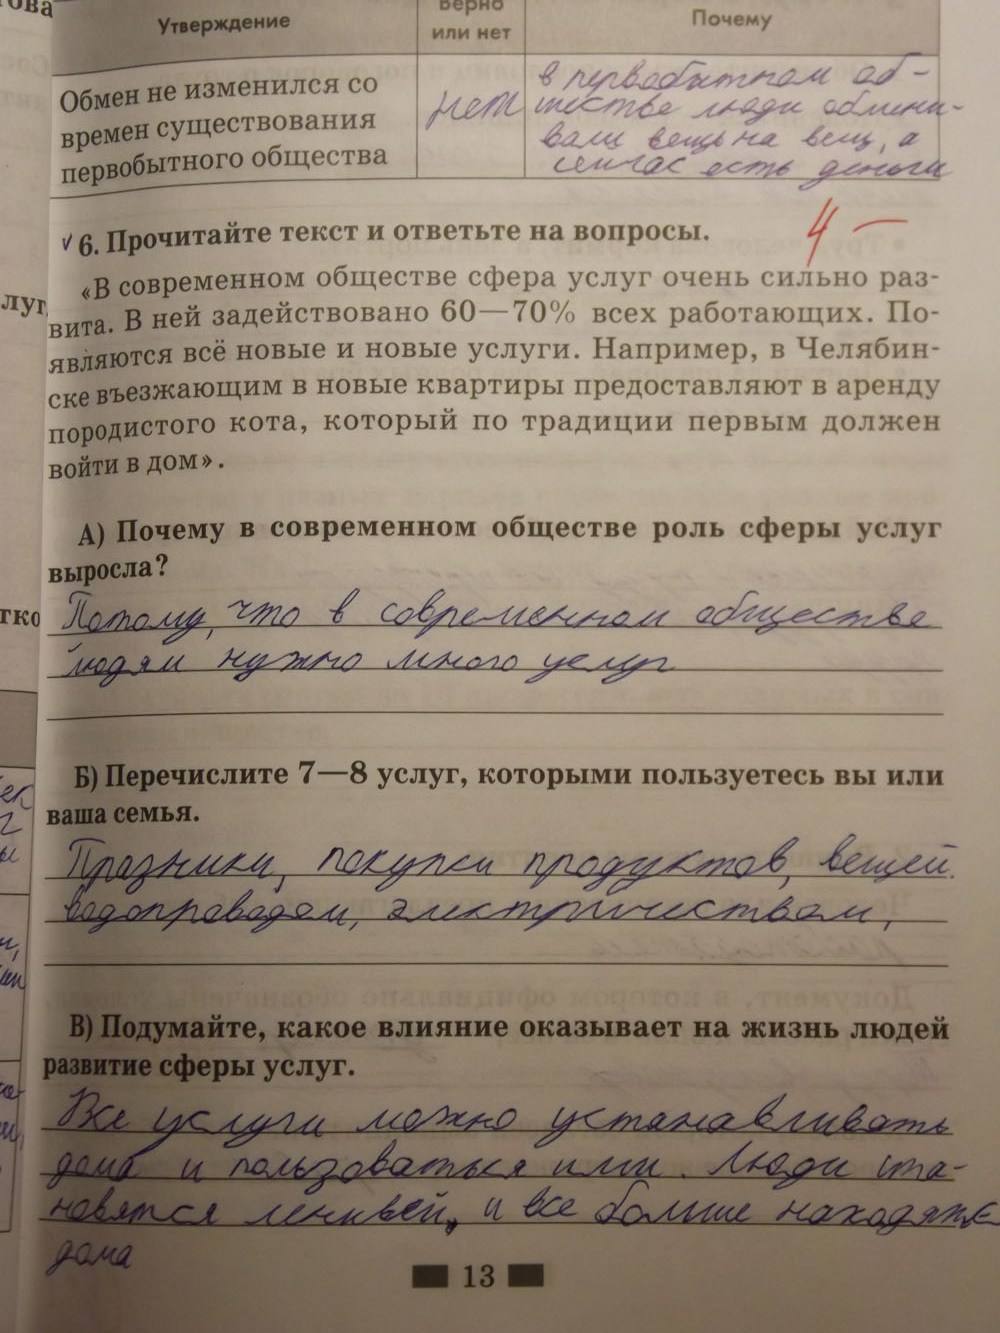 това
Утверждение
Верно
или нет
Почему
Обмен не изменился со
времен существования
первобытного общества
нет
в первобытном об-
ществе люди обмени-
вали вещь на вещ, а
сейчас есть деньги
6. Прочитайте текст и ответьте на вопросы.
4 —
«В современном обществе сфера услуг очень сильно раз-
вита. В ней задействовано 60—70% всех работающих. По-
являются всё новые и новые услуги. Например, в Челябин-
ске въезжающим в новые квартиры предоставляют в аренду
породистого кота, который по традиции первым должен
войти в дом».
А) Почему в современном обществе роль сферы услуг
выросла?
Потому, что в современном обществе
людям нужно много услуг
Б) Перечислите 7—8 услуг, которыми пользуетесь вы или
ваша семья.
Празники, покупки продуктов, вещей.
водопроводом, электричеством,
В) Подумайте, какое влияние оказывает на жизнь людей
развитие сферы услуг.
Все услуги можно устанавливать
дома и пользоваться ими. Люди ста-
новятся ленивей, и все больше находятся
дома
13